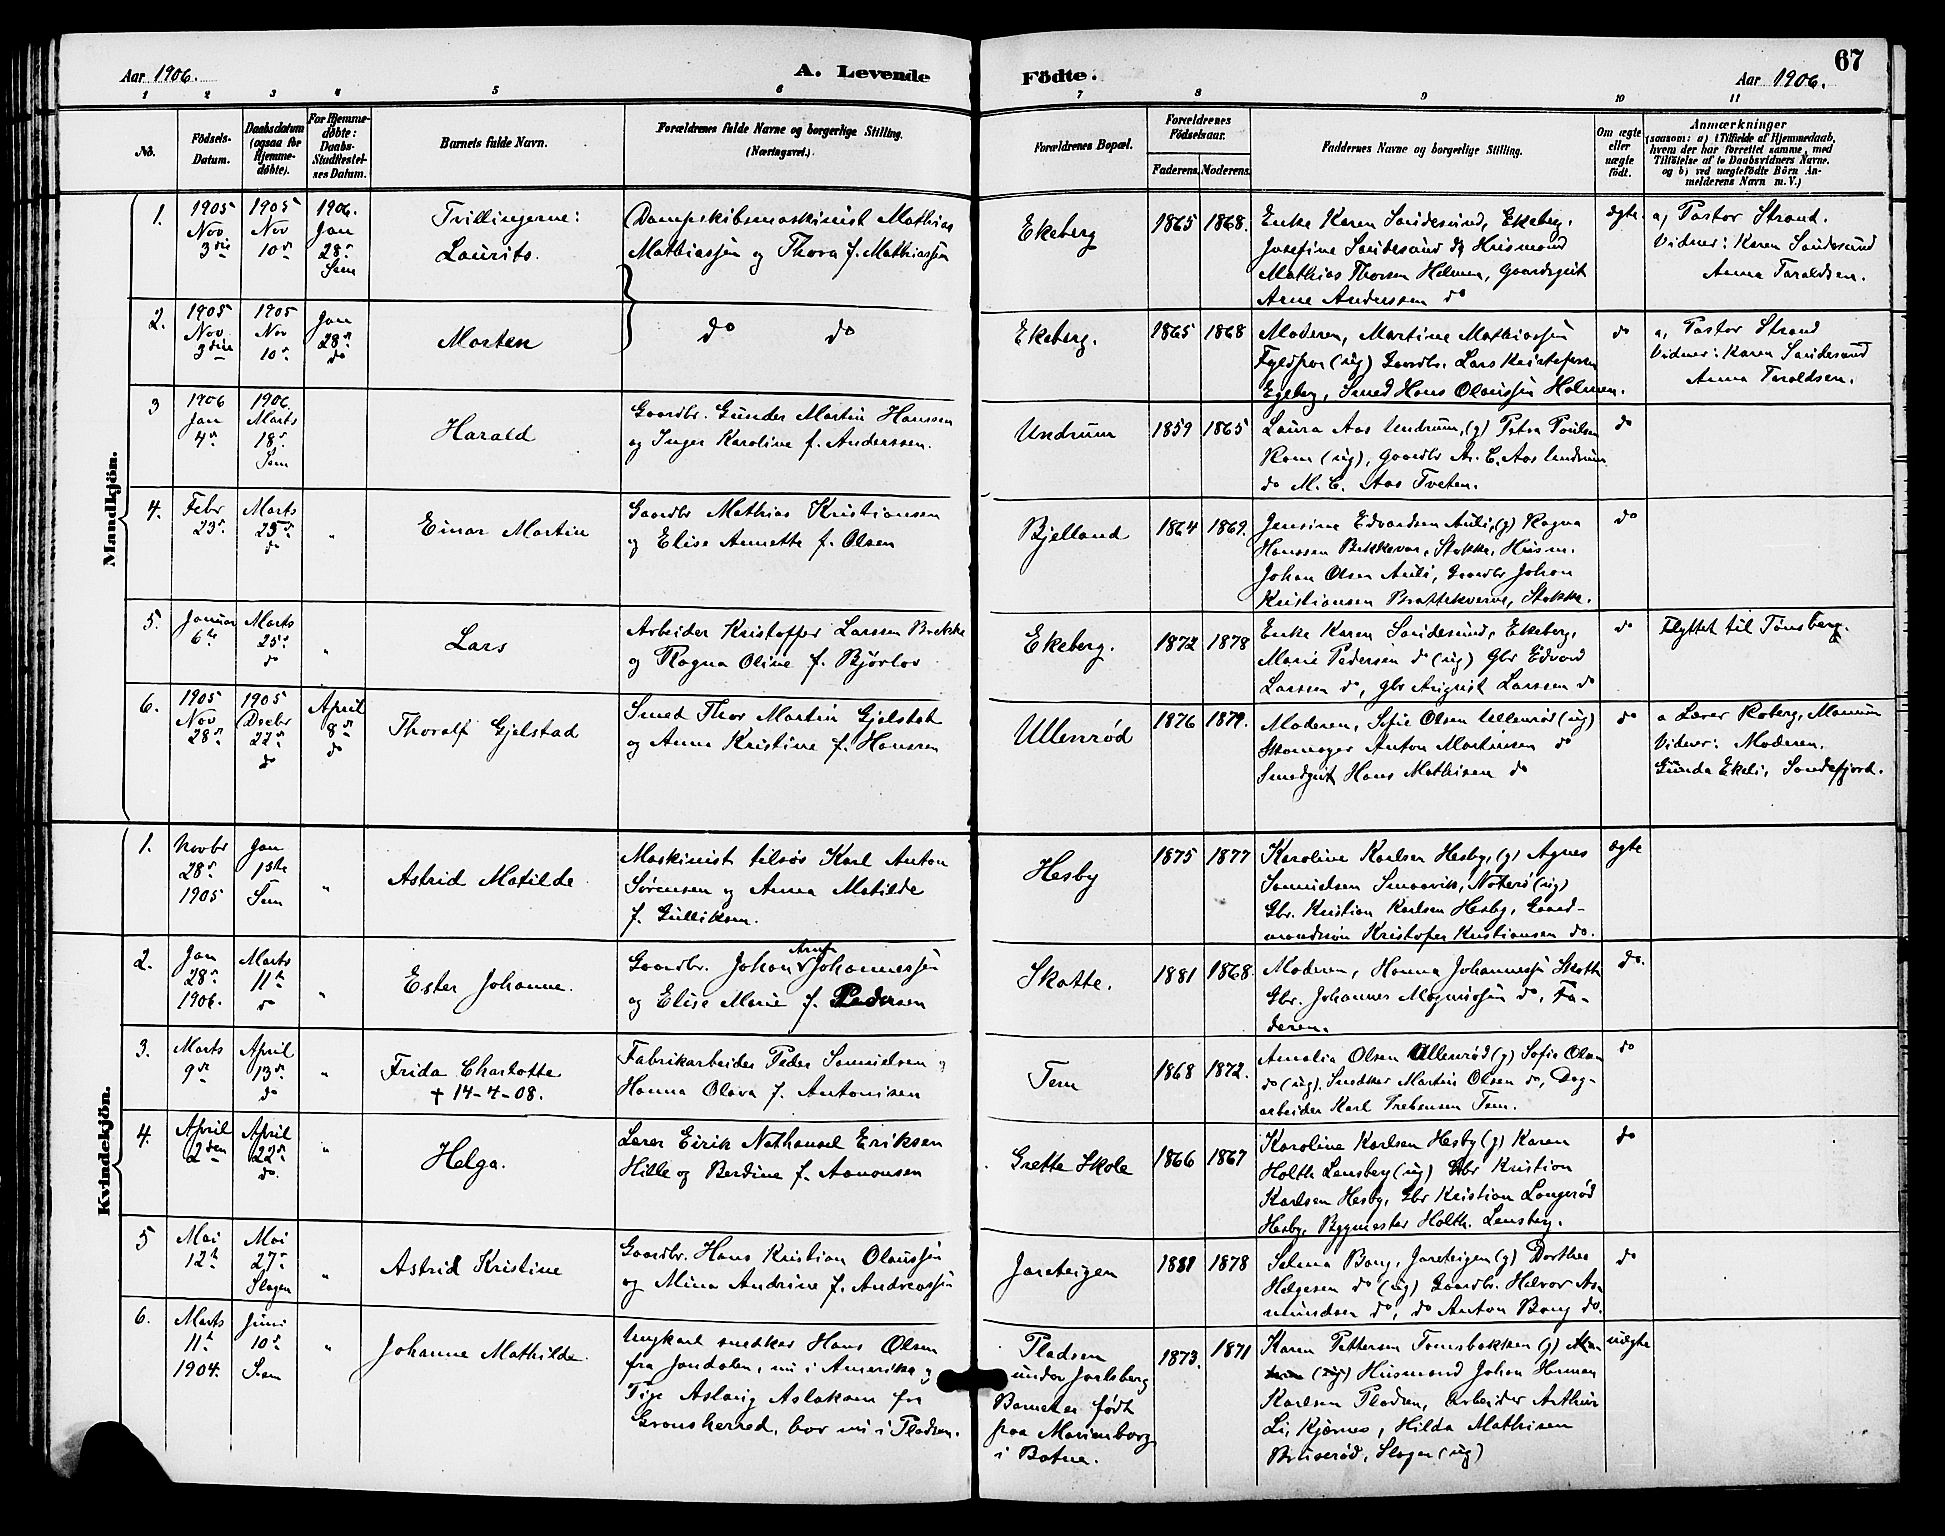 Aar 1906. A. Levende Fødte. Aar 1906. 67
1 2 3 4 5 6 7 8 9 10 11
No. Födsels-Datum. Daabsdatum (ogsaa for Hjemmedøbte). For Hjemmedøbte: Daabs-Stadfæstelses Datum. Barnets fulde Navn. Forældrenes fulde Navne og borgerlige Stilling. (Næringsvei.) Forældrenes Bopæl. Forældrenes Födselsaar. Faderens. Moderens. Faddernes Navne og borgerlige Stilling. Om ægte eller uægte født. Anmærkninger
(saasom: a) i Tilfælde af Hjemmedaab, hvem der har forrettet samme, med Tilföielse af to Daabsvidners Navne, og b) ved uægtefödte Börn Anmelderens Navn m. V.)
Mandkjön.
1. 1905 Nov 3die
1905 Nov 10de
1906. Jan 28de Sem
Tvillingerne:
Laurits.
Dampskibsmaskinist Mathias
Mathiassen og Thora f. Mathiassen
Ekeberg
1865 1868.
Enke Karen Sandesund, Ekeberg,
Josefine Sandesund do, Husmand
Mathias Thorsen Holmen, Gaardsgut
Arne Anderssen do
ægte.
a, Pastor Strand.
Vidner: Karen Sandesund
Anna Taraldsen.
2. 1905 Nov 3die
1905 Nov 10de
Jan 28de do
Morten
do do
Ekeberg.
1865 1868
Moderen, Martine Mathiassen
(ug) Gaardbr. Lars Kristofersen
Egeberg, Smed Hans Olaussen Holmen.
do
a, Pastor Strand
Vidner: Karen Sandesund
Anna Taraldsen.
3 1906 Jan 4de
1906. Marts 18de Sem
Harald
Gaardbr. Gunder Martin Hanssen
og Inger Karoline f. Anderssen.
Undrum
1859 1865
Laura Aas Undrum, (g) Petra Paulsen
Ram (ug), Gaardbr A. C. Aas Undrum
do M. C. Aas Tveten.
do
4. Febr 23de
Marts 25de do
"
Einar Martin
Gaardbr Mathias Kristiansen
og Elise Annette f. Olsen
Bjelland
1864 1869.
Jensine Edvardsen Auli, (g) Ragna
Hanssen Bekkevar, Stokke, Husm.
Johan Olsen Auli, Gaardbr Johan
Kristiansen Brattekverve, Stokke.
do
5. Januar 6te
Marts 25de do
"
Lars
Arbeider Kristoffer Larssen Brekke
og Ragna Oline f. Bjørløv
Ekeberg.
1872 1878
Enke Karen Sandesund, Ekeberg,
Marie Pedersen do (ug) Gbr Edvard
Larssen do, Gbr August Larssen do
do
Flyttet til Tønsberg.
6. 1905 Nov 28de
1905 Decbr 22de do
April 8de do
Thoralf Gjelstad
Smed Thor Martin Gjelstad
og Anna Kristine f. Hanssen
Ullenrød
1876 1879.
Moderen, Sofie Olsen Ullenrød (ug)
Skomager Anton Martinsen do
Smedgut Hans Mathisen do
do
a Lærer Roberg,
Vidner: Moderen.
Gunda Ekeli, Sandefjord.
Kvindekjön.
1. Novbr 28de 1905
Jan 1ste Sem
"
Astrid Matilde
Maskinist tilsøs Karl Anton
Sørensen og Anna Matilde
f. Gulliksen.
Hesby
1875 1877
Karoline Karlsen Hesby, (g) Agnes
Samuelsen Smaavik, Nøterø (ug)
Gbr. Kristian Karlsen Hesby, Gaard-
mandssøn Kristofer Kristiansen do.
ægte
2. Jan 28de 1906.
Marts 11te do
"
Ester Johanne.
Gaardbr. Johan Arnt Johannessen
og Elise Marie f. Pedersen
Skatte.
1881 1868.
Moderen, Hanna Johannessen Skatte
Gbr. Johannes Magnussen do, Fa-
deren.
do.
3. Marts 9de
April 13de do
"
Frida Charlotte
+ 14-4-08.
Fabrikarbeider Peder Samuelsen og
Hanna Olava f. Antonisen
Tem
1868 1872.
Amalia Olsen Ullenrød (g) Sofie Olsen
do (ug). Snedker Martin Olsen do, Dag-
arbeider Karl Prebensen Tem.
do
4. April 2den
April 22de do.
"
Helga.
Lærer Eirik Nathanael Eriksen
Hille og Berdine f. Aanonsen
Grette Skole
1866 1867
Karoline Karlsen Hesby (g) Karen
Holth Lensberg (ug) Gbr Kristian
Karlsen Hesby, Gbr Kristian Langerød
Hesby, Bygmester Holth. Lensberg.
do
5 Mai 12te
Mai 27de Slagen
"
Astrid Kristine
Gaardbr. Hans Kristian Olaussen
og Mina Andrine f. Andreassen
Jareteigen
1881 1878
Selma Bang, Jareteigen (g) Dorthea
Helgesen do (ug) Gaardbr. Halvor As-
mundsen do, do Anton Bang do.
do
6. Marts 11te 1904.
Juni 10de Sem
"
Johanne Mathilde
Ungkarl snedker Hans Olsen
fra Jondalen, nu i Amerika og
Pige Aslaug Aslaksen fra
Gransherred, bor nu i Pladsen.
Pladsen
under Jarlsberg
Barnet er født
paa Marienborg
i Botne.
1873. 1871
Karen Pettersen Tomsbakken (g)
(ug) Husmand Johan Herman
Karlsen Pladsen, Arbeider Arthur
Li, Kjærnes, Hilda Mathisen
Slagen (ug)
uægte